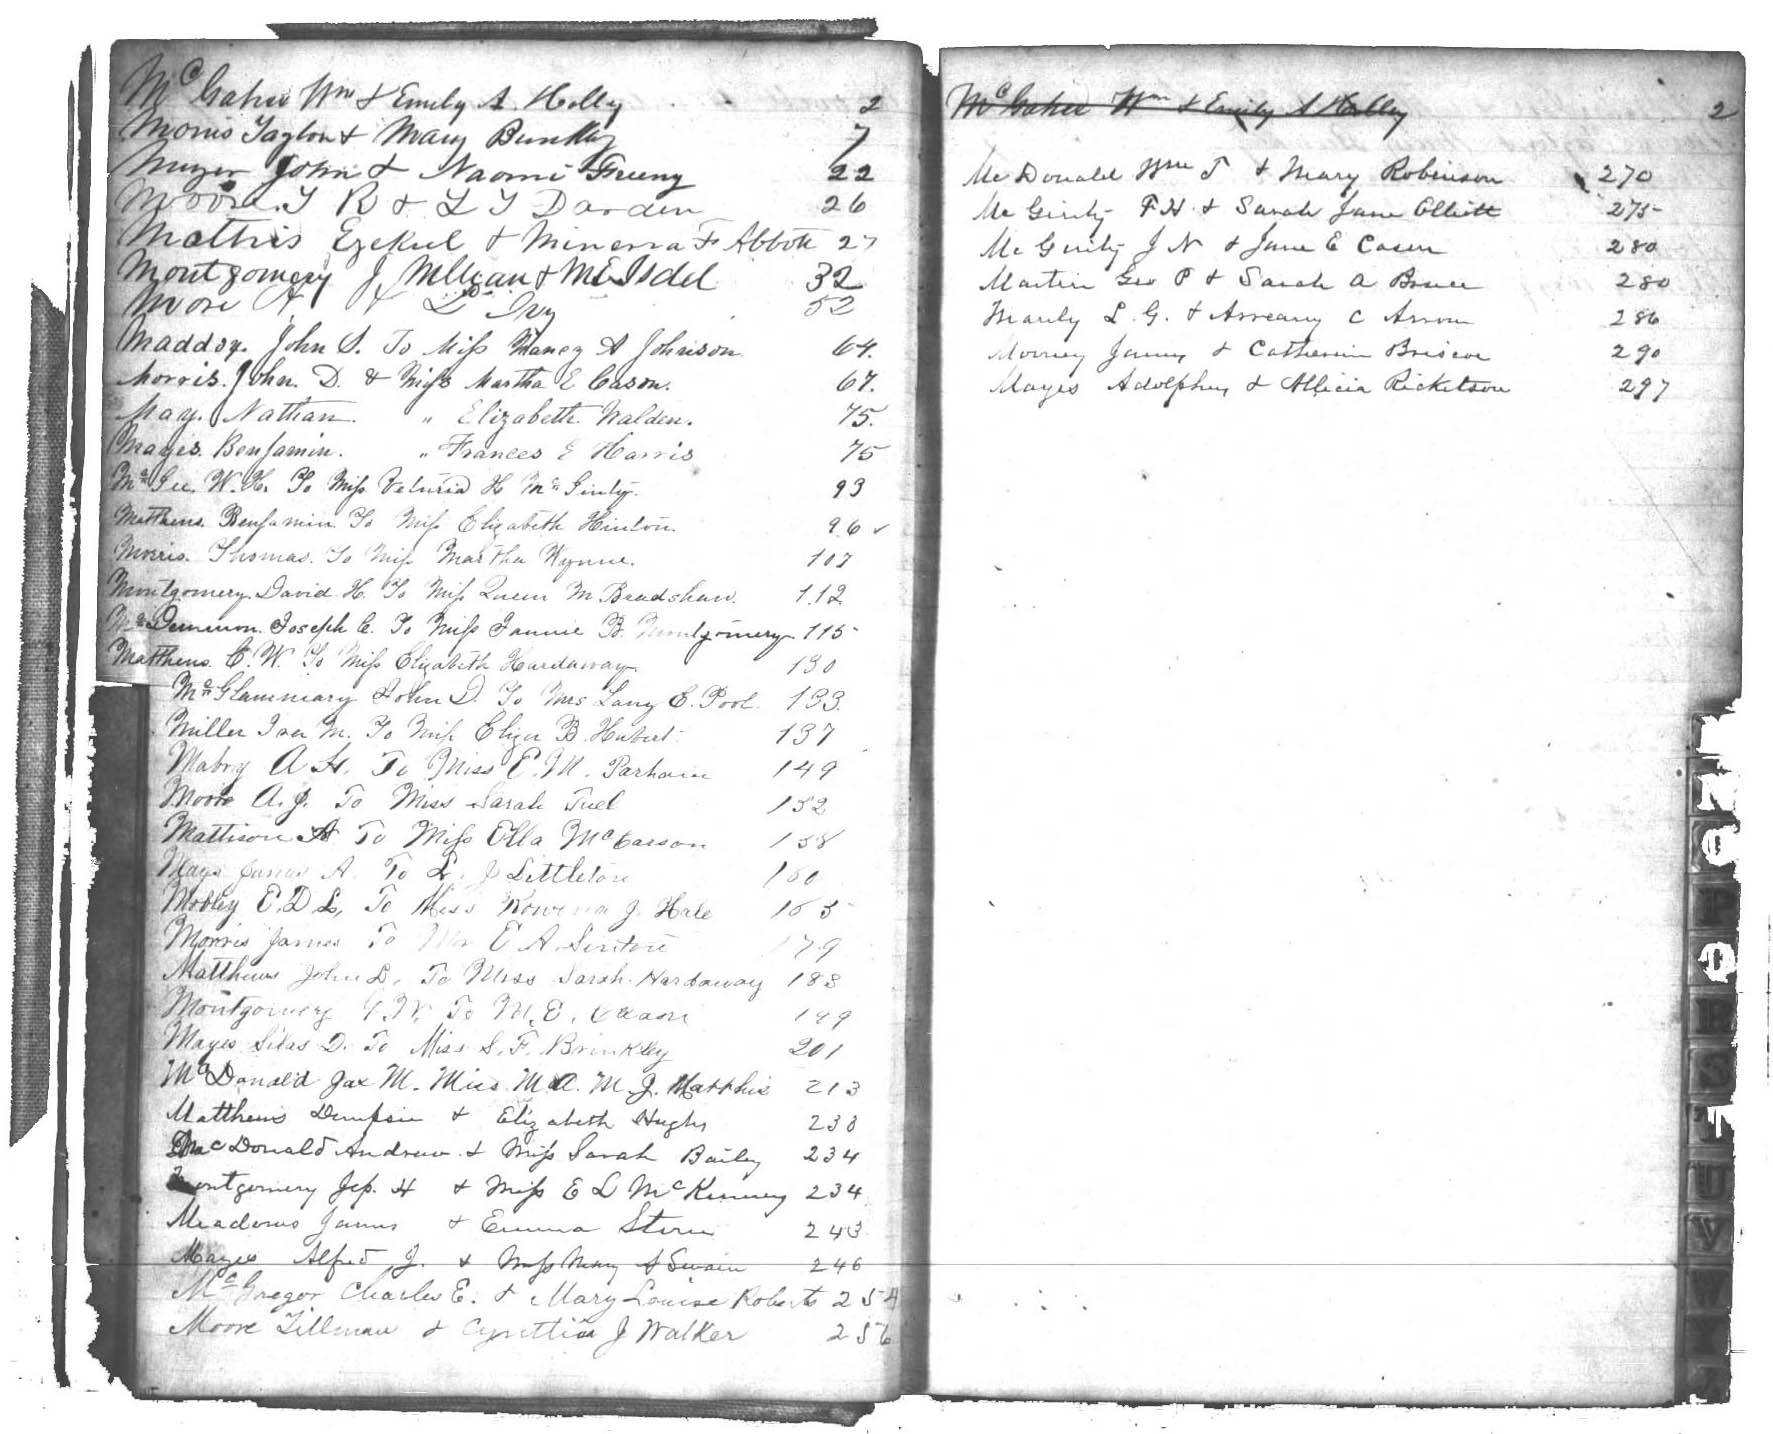 McGahee Wm & Emily A. Holly 2
Morris Taylor & Mary Bunkley 7
John & Naomi Freeny 22
Moore T R & L T Darden 26
Mathis Ezekiel & Minerva F Abbott 27
Montgomery J & M E 32
Moore A & Ivy 52
Maddox. John S. To Miss Nancy A Johnson 64.
Morris. John. D. & Miss Martha E Cason. 67.
May. Nathan. " Elizabeth Walden. 75.
Mayes. Benjamin. " Frances E Harris 75
McGee, W. H. To Miss Veturia H McGinty. 93
Matthews. Benjamin To Miss Elizabeth Hinton. 96
Morris. Thomas. To Miss Martha Wynne. 107
Montgomery. David H. To Miss Queen M Bradshaw. 112
Joseph C. To Miss Fannie B. Montgomery 115
Matthews. C. W. To Miss Elizabeth Hardaway 130
McGlammary John D. To Mrs E. Pool 133
Miller Ira M. To Miss Eliza B. Hubert 137
Mabry A H. To Miss E. M. Parham 149
Moore A. J. To Miss Sarah 152
Mattison A To Miss Ella McCarson 158
Mays James A. To L. J Littleton 160
Mobley E. D L, To Miss Rowena J. Hale 165
Morris James To E A. 179
Matthews John D, To Miss Sarah Hardaway 183
Montgomery To M. E. Cason 199
Mayes Silas D. To Miss S. F. Brinkley 201
McDonald Jas M. Miss M A. M. J. Matthis 213
Matthews Dempsie & Elizabeth Hughs 233
McDonald Andrew & Miss Sarah Bailey 234
Montgomery H & Miss E L McKinney 234
Meadows James & Emma Stern 243
Mayes Alfred J. & Miss Mary A Swain 246
McGregor Charles E. & Mary Louise Roberts 254
Moore Tillman & Cynthia J Walker 256
McGahee Wm & Emily A Holley 2
McDonald Wm J & Mary Robinson 270
McGinty F. H. & Sarah Jane Elliott 275
McGinty J N & Jane E Cason 280
Martin Geo P & Sarah A Bruce 280
L. G. & C 286
Mooney James & Catherine Briscoe 290
Mayes Adolphus & Allicia Ricketson 297
N
O
P
Q
R
S
T
U
V
W
Y
Z